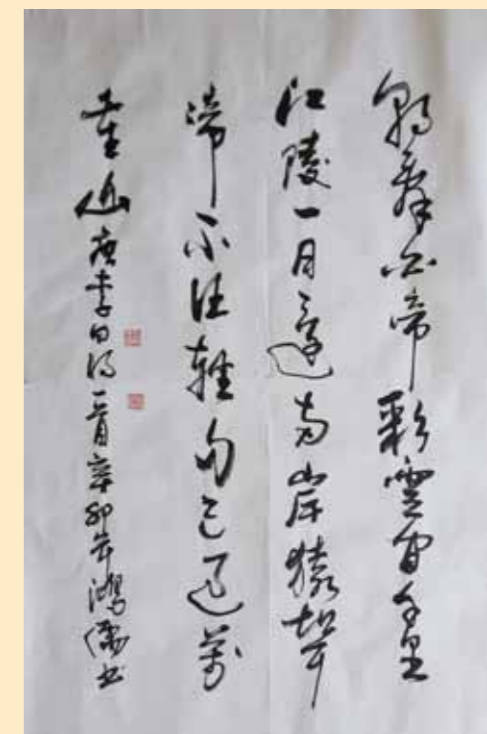 朝辞白帝彩雲间千里
江陵一日還両岸猿聲
啼不住軽舟已过萬
重山唐李白詩一首辛卯年鴻儒书